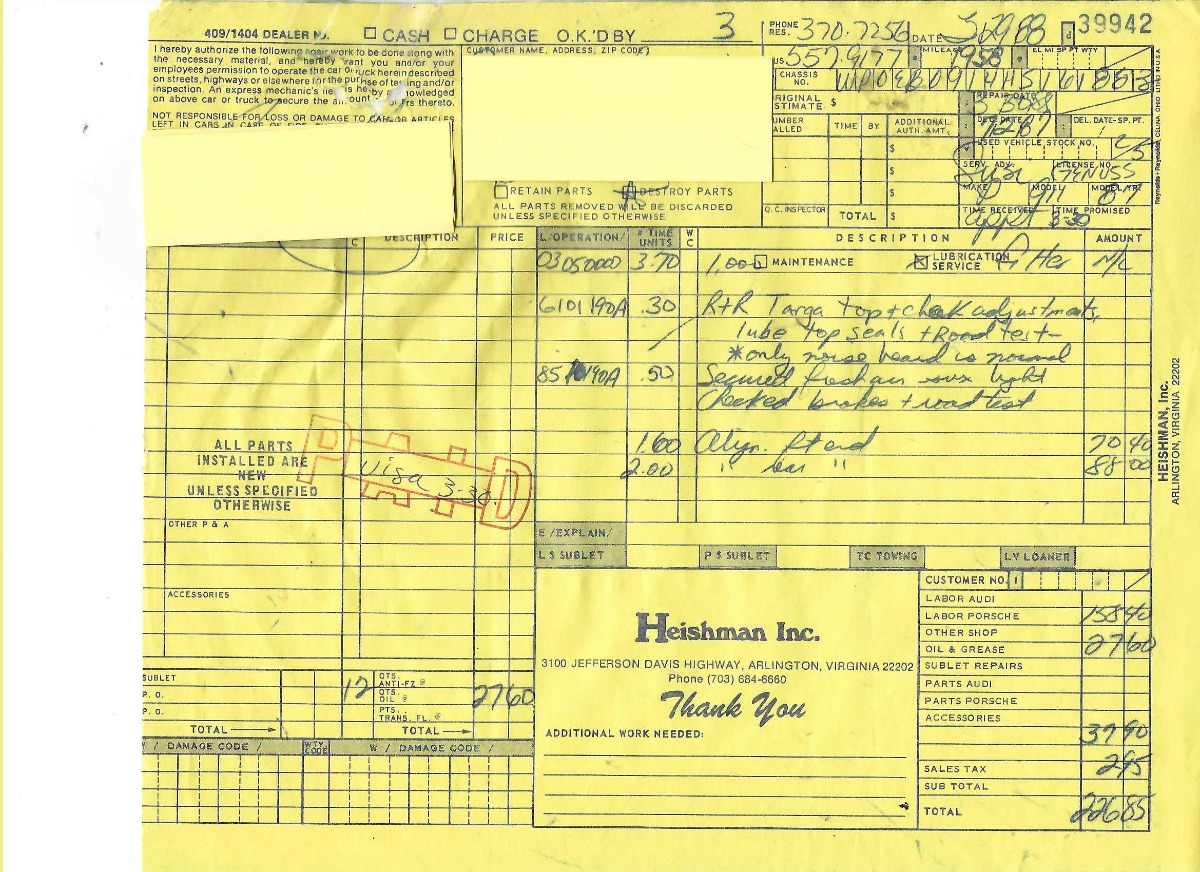 409/1404 DEALER NO. ☐ CASH ☐ CHARGE O.K.'D BY 3 PHONE RES. 370.7256 DATE 32988 39942
I hereby authorize the following repair work to be done along with
the necessary material, and hereby grant you and/or your
employees permission to operate the car or truck herein described
on streets, highways or elsewhere for the purpose of testing and/or
inspection. An express mechanic's lien is hereby acknowledged
on above car or truck to secure the amount of repairs thereto.
NOT RESPONSIBLE FOR LOSS OR DAMAGE TO CAR OR ARTICLES
LEFT IN CARS IN CASE OF FIRE,
CUSTOMER NAME, ADDRESS, ZIP CODE)
BUS. 557.9177 MILEAGE 1958
CHASSIS NO.
ORIGINAL ESTIMATE $ REPAIR DATE
NUMBER CALLED TIME BY ADDITIONAL AUTH. AMT. DEL. DATE 12 87 DEL. DATE-SP. PT.
$ USED VEHICLE STOCK NO.
$ SERV. ADV. LICENSE NO. GENUSS
$ MAKE P MODEL 911 MODEL YR.
Q. C. INSPECTOR TOTAL $ TIME RECEIVED appt TIME PROMISED 5-30
☐ RETAIN PARTS ☒ DESTROY PARTS
ALL PARTS REMOVED WILL BE DISCARDED
UNLESS SPECIFIED OTHERWISE
C DESCRIPTION PRICE L/OPERATION/ # TIME UNITS W C DESCRIPTION AMOUNT
03050000 3.70 1,000 MAINTENANCE ☒ LUBRICATION SERVICE filter N/C
6101190A .30 R+R Targa top + check adjustments,
lube top seals + Road test-
*only noise heard is normal
85 190A .50 Secured fresh air light
Checked brakes + road test
1.60 Align. ft end 70 40
2.00 " rear " 88 00
ALL PARTS
INSTALLED ARE
NEW
UNLESS SPECIFIED
OTHERWISE
PAID
Visa 3-30
OTHER P & A
E /EXPLAIN/
L S SUBLET P S SUBLET TC TOWING LV LOANER
ACCESSORIES
Heishman Inc.
3100 JEFFERSON DAVIS HIGHWAY, ARLINGTON, VIRGINIA 22202
Phone (703) 684-6660
Thank You
ADDITIONAL WORK NEEDED:
CUSTOMER NO. 1
LABOR AUDI
LABOR PORSCHE 158 40
OTHER SHOP
OIL & GREASE 27 60
SUBLET REPAIRS
PARTS AUDI
PARTS PORSCHE
ACCESSORIES
37 90
SALES TAX 2 95
SUB TOTAL
TOTAL 226 85
SUBLET
P. O.
P. O.
TOTAL
12 QTS. ANTI-FZ @
QTS. OIL @ 27 60
PTS. TRANS. FL. @
TOTAL
W / DAMAGE CODE / WTY CODE W / DAMAGE CODE /
HEISHMAN, Inc.
ARLINGTON, VIRGINIA 22202